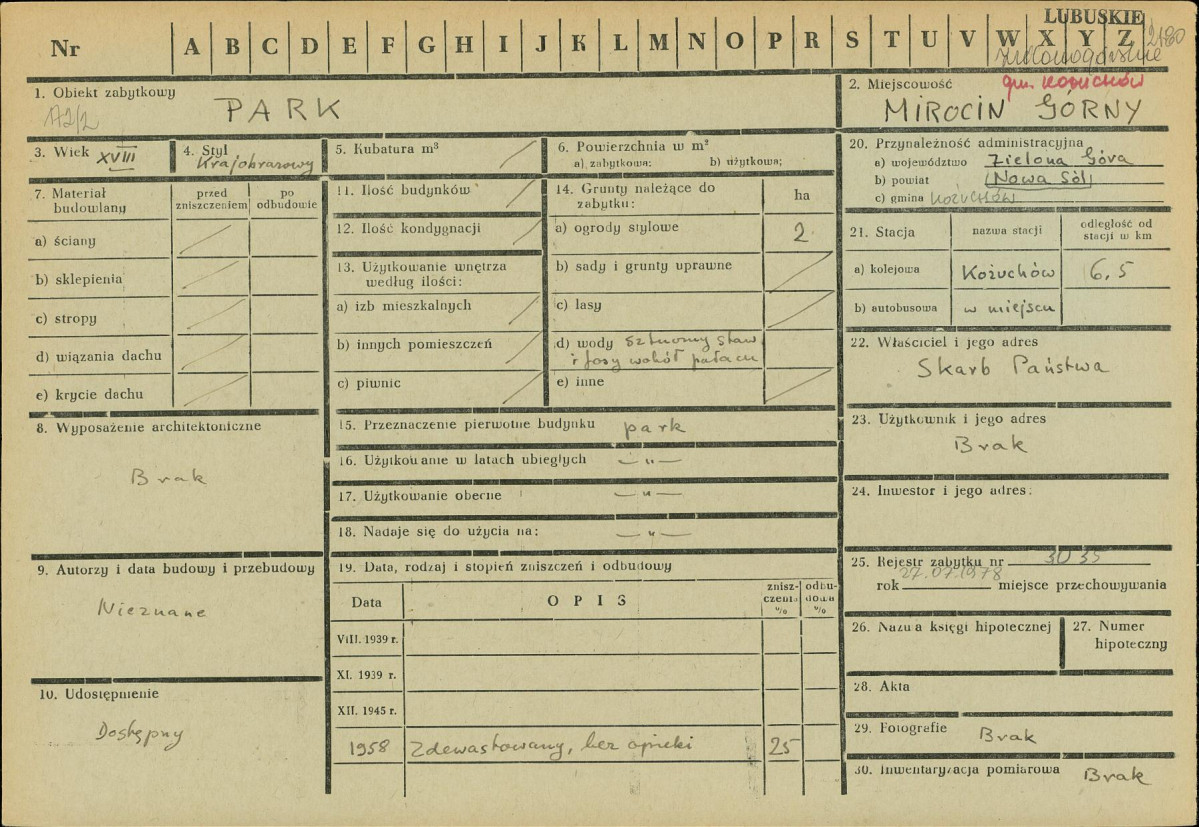 LUBUSKIE
Nr A B C D E F G H I J K L M N O P R S T U V W X Y Z
2180
zielonogórskie
gm. KOŻUCHÓW
1. Obiekt zabytkowy
PARK
2. Miejscowość
MIROCIN GÓRNY
3. Wiek XVIII
4. Styl
Krajobrazowy
5. Kubatura m³
6. Powierzchnia w m²
a) zabytkowa: b) użytkowa:
7. Materiał
budowlany
przed
zniszczeniem
po
odbudowie
a) ściany
b) sklepienia
c) stropy
d) wiązania dachu
e) krycie dachu
8. Wyposażenie architektoniczne
Brak
9. Autorzy i data budowy i przebudowy
Nieznane
10. Udostępnienie
Dostępny
11. Ilość budynków
12. Ilość kondygnacji
13. Użytkowanie wnętrza
według ilości:
a) izb mieszkalnych
b) innych pomieszczeń
c) piwnic
14. Grunty należące do
zabytku:
ha
a) ogrody stylowe
2
b) sady i grunty uprawne
c) lasy
d) wody sztuczny staw
i fosy wokół pałacu
e) inne
15. Przeznaczenie pierwotne budynku park
16. Użytkowanie w latach ubiegłych — " —
17. Użytkowanie obecne — " —
18. Nadaje się do użycia na: — " —
19. Data, rodzaj i stopień zniszczeń i odbudowy
Data
OPIS
znisz-
czenia
%
odbu-
dowa
%
VIII. 1939 r.
XI. 1939 r.
XII. 1945 r.
1958 Zdewastowany, bez opieki 25
20. Przynależność administracyjna
a) województwo Zielona Góra
b) powiat Nowa Sól
c) gmina KOŻUCHÓW
21. Stacja
nazwa stacji
odległość od
stacji w km
a) kolejowa Kożuchów 6,5
b) autobusowa w miejscu
22. Właściciel i jego adres
Skarb Państwa
23. Użytkownik i jego adres
Brak
24. Inwestor i jego adres:
25. Rejestr zabytku nr 3035
27.07.1978
rok miejsce przechowywania
26. Nazwa księgi hipotecznej
27. Numer
hipoteczny
28. Akta
29. Fotografie Brak
30. Inwentaryzacja pomiarowa Brak